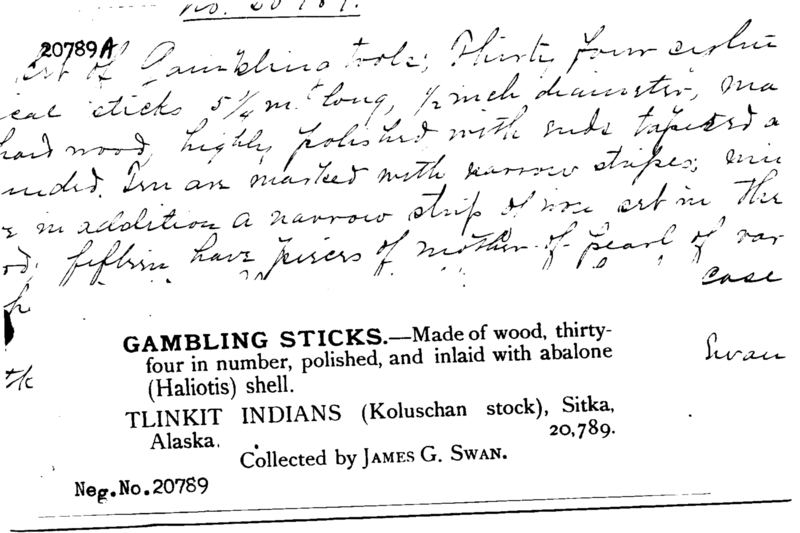 No. 20789.
20789A
Set of Gambling tools; Thirty four cylin
ical sticks 5 1/4 in long, 1/2 inch diameter, ma
hard wood, highly polished with ends tapered a
unded. Ten are marked with narrow stripes; nin
e in addition a narrow strip of iron set in the
od; fifteen have pieces of mother-of-pearl of var
case
Swan
GAMBLING STICKS.—Made of wood, thirty-
four in number, polished, and inlaid with abalone
(Haliotis) shell.
TLINKIT INDIANS (Koluschan stock), Sitka,
Alaska.
20,789.
Collected by JAMES G. SWAN.
Neg.No.20789